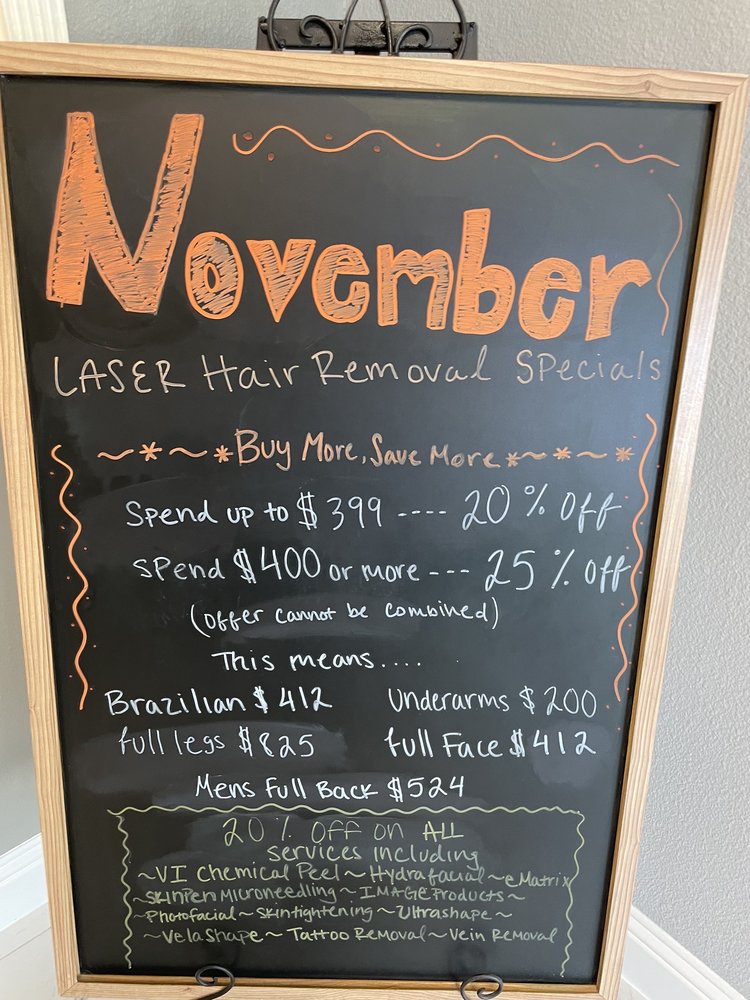 November
LASER Hair Removal Specials
~*~*Buy More, Save More*~*~*
Spend up to $399 ---- 20% Off
Spend $400 or more --- 25% Off
(offer cannot be combined)
This means....
Brazilian $412 Underarms $200
full legs $825 full Face $412
Mens Full Back $524
20% OFF on ALL
services including
~VI Chemical Peel~ Hydrafacial~eMatrix
~SkinPen Microneedling~IMAGE Products~
~Photofacial~Skintightening~Ultrashape~
~VelaShape~ Tattoo Removal~Vein Removal